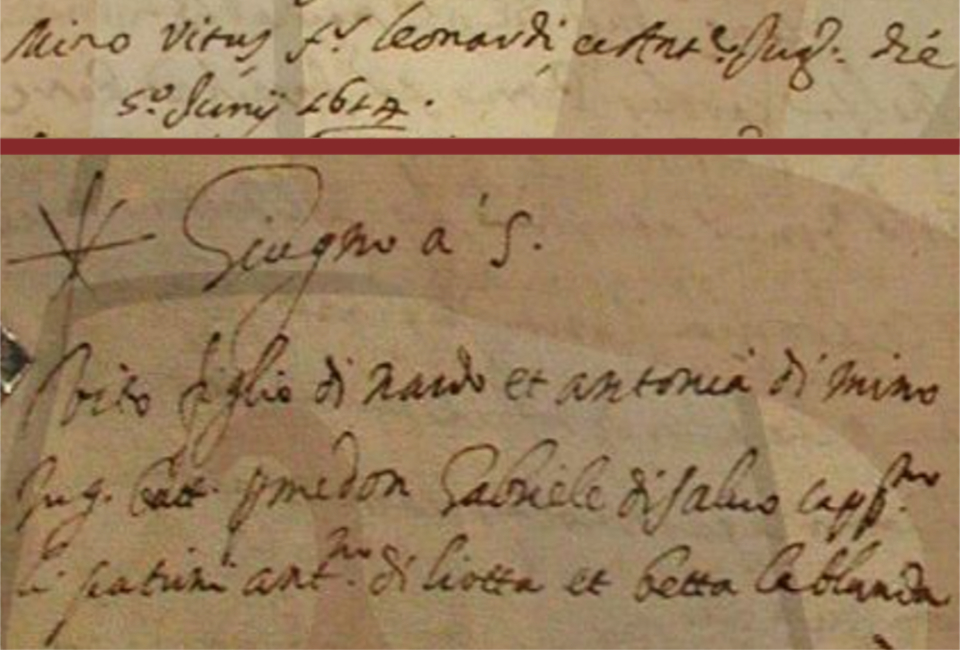 Mino Vitus f.s leonardi et Ant.e Jug. die
5.o Junij 1614.
Giugno a 5.
Vito figlio di nardo et antonia di mino
Jug. batt. p me don Gabriele di salvo capp.no
li patrini ant.no di liotta et betta la blanda